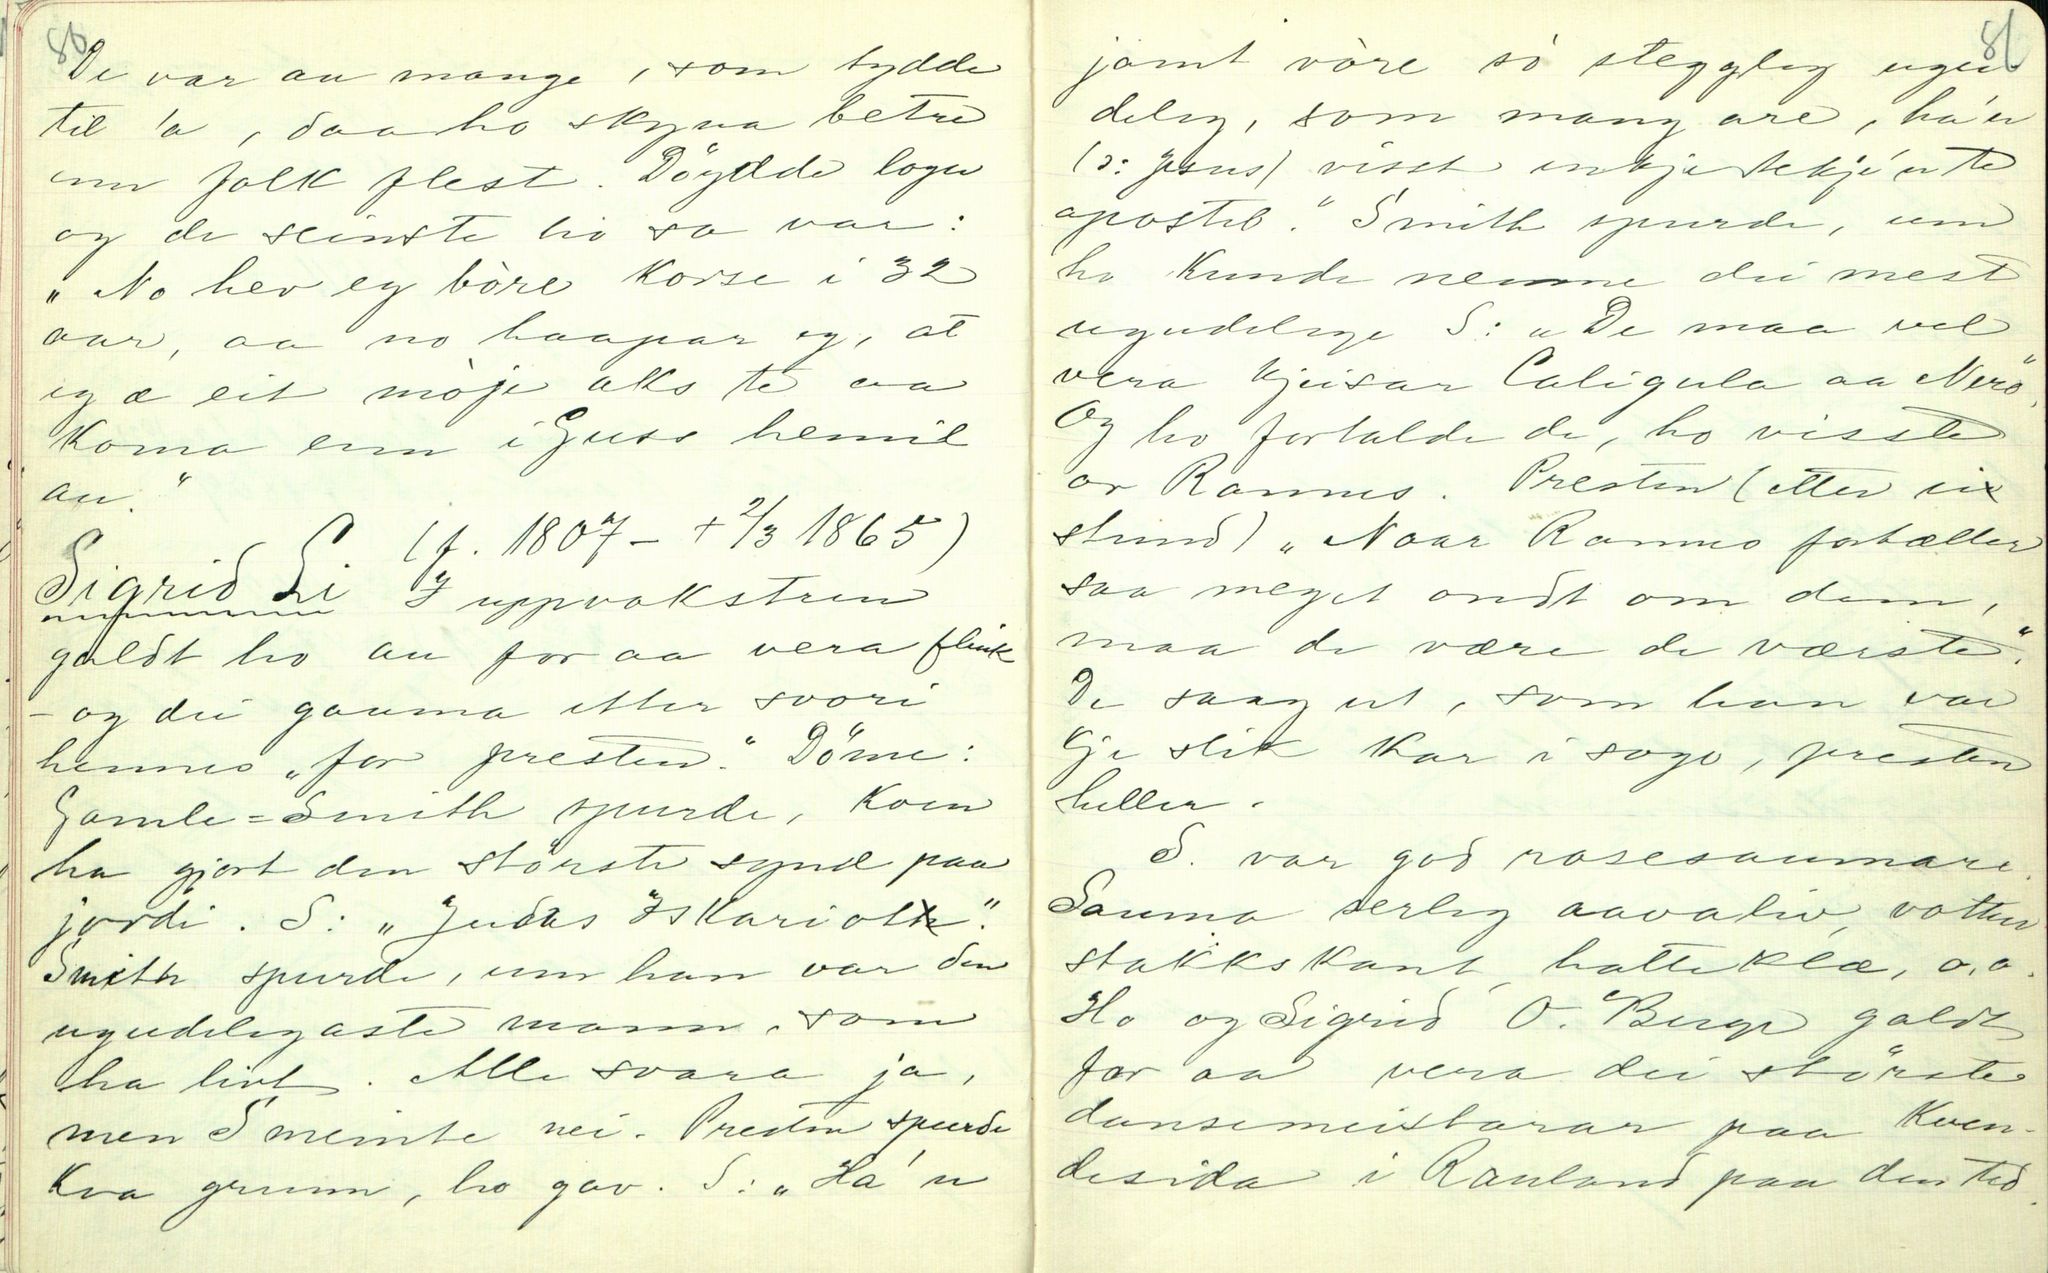 80
De var au mange, som tydde
til 'a, daa ho skyna betre
enn folk flest. Döydde logn
og de seinste ho sa var:
„No hev eg bòre korse i 32
aar, aa no haapar eg, at
eg æ eit mòje aks te aa
koma enn i Guss hemil
au."
Sigrid Li (f. 1807 - + 2/3 1865)
I uppvakstren
galdt ho au for aa vera flink
- og dei gauma etter svori
hennes „for presten." Döme:
Gamle=Smith spurde, kven
ha gjort den störste synd paa
jordi. S: „Judas Iskariot".
Smith spurde, um han var den
ugudelegaste mann, som
ha livt. Alle svara ja,
men S meinte nei. Presten spurde
kva grunn, ho gav. S: „Ha'n
81
jamt vòre sò steggleg ugu-
deleg, som mang are, ha'n
(ɔ: Jesus) visst inkje tekje'n te
apostel." Smith spurde, um
ho kunde nemne dei mest
ugudelege S: „De maa vel
vera kjeisar Caligula aa Nero",
Og ho fortalde de, ho visste
or Ramus. Presten (etter ei
stund) „Naar Ramus fortæller
saa meget ondt om dem,
maa de være de værste".
De saag ut, som han var
kje slik kar i sogo, presten
heller.
S. var god rosesaumare.
Sauma serleg aavaliv, votten
stakkskant, hatteklæ, o.a.
Ho og Sigrid O. Berge galdt
for aa vera dei störste
dansemeistarar paa kven-
desida i Rauland paa den tid.